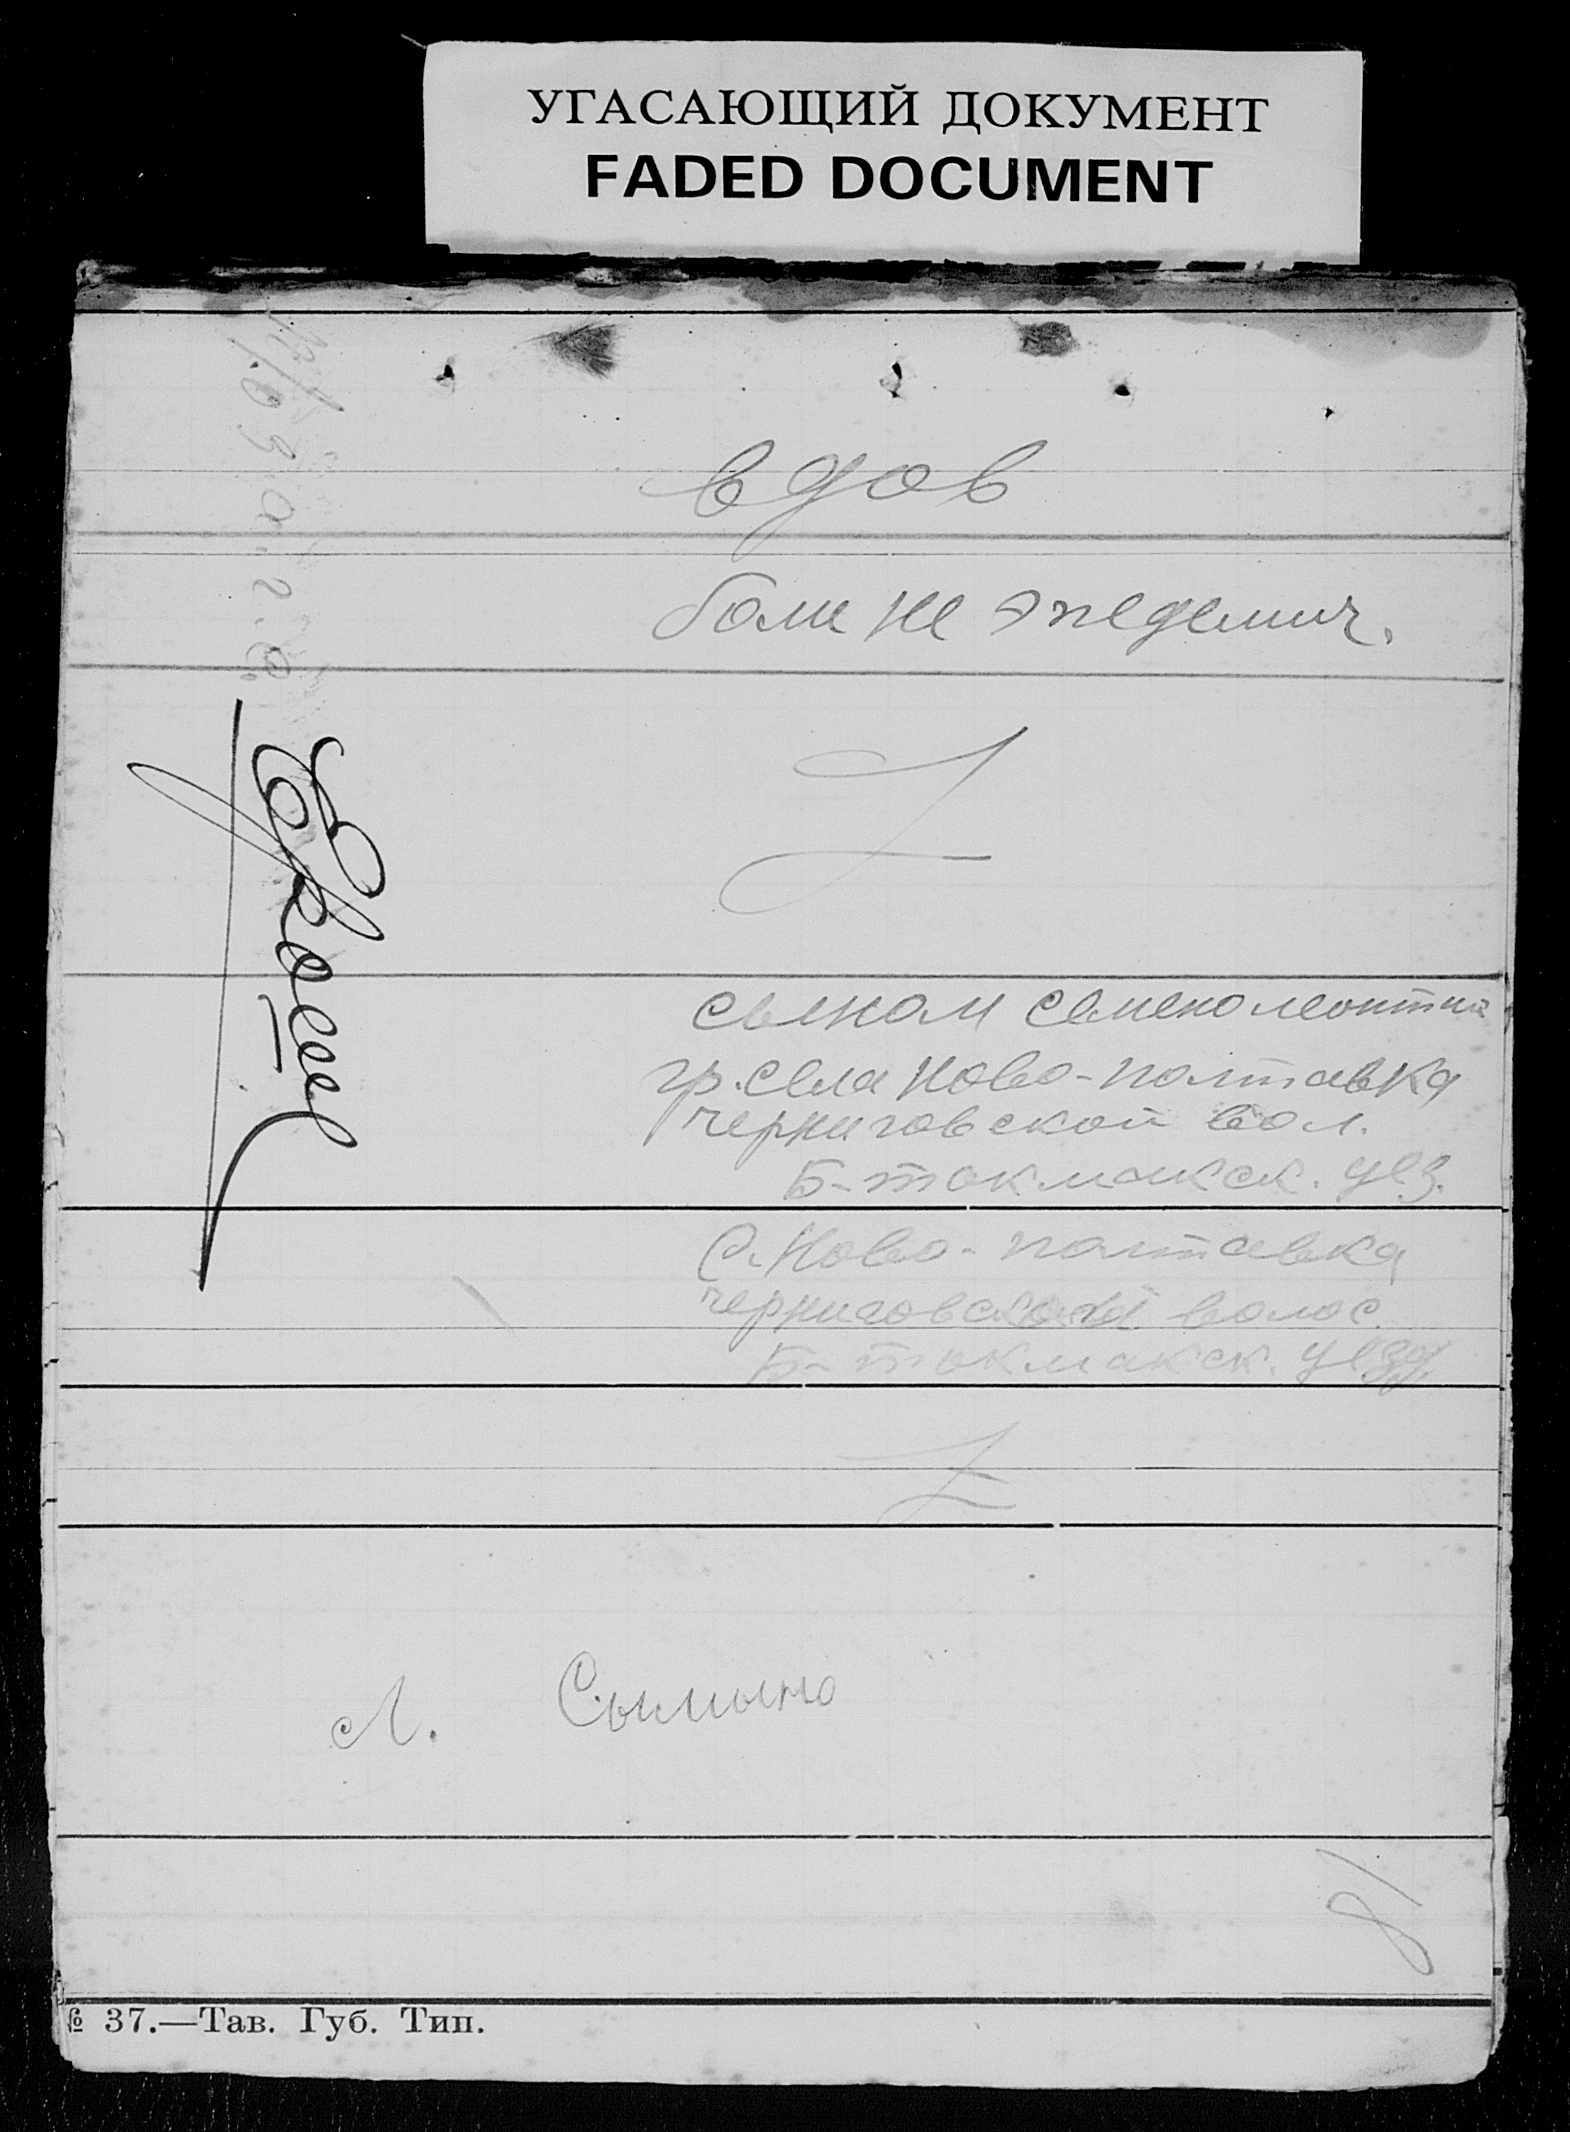 УГАСАЮЩИЙ ДОКУМЕНТ
FADED DOCUMENT
вдов
боли не эпедемич.
сыном
гр. села Ново-полтавка
черниговской вол.
Б-токмакск. уез.
С. Ново-полтавка
черниговской волос.
Б-токмакск. уезд.
Л.
18
№ 37.—Тав. Губ. Тип.